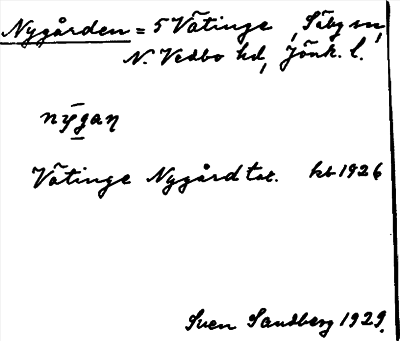 Nygården = 5 Vätinge, Säby sn,
N. Vedbo hd, Jönk. l.
nȳgaɳ
Vätinge Nygård tal. kb 1926
Sven Sandberg 1929.